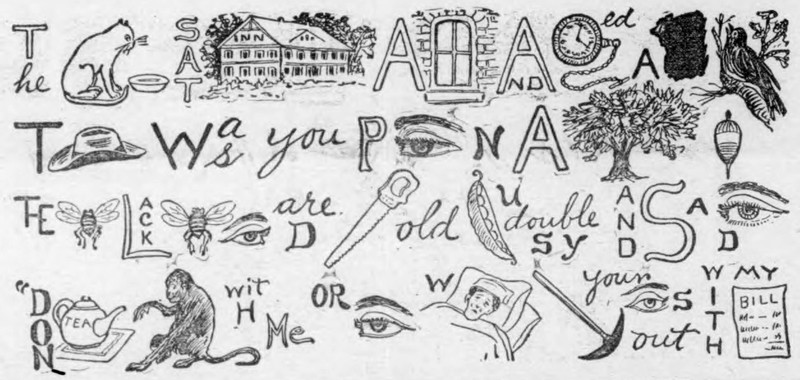 The SAT INN A AND ed A
T Was you P N A
TE LACK are D old U double SY AND S A D
"DON TEA witH Me OR W your S out WITH MY BILL